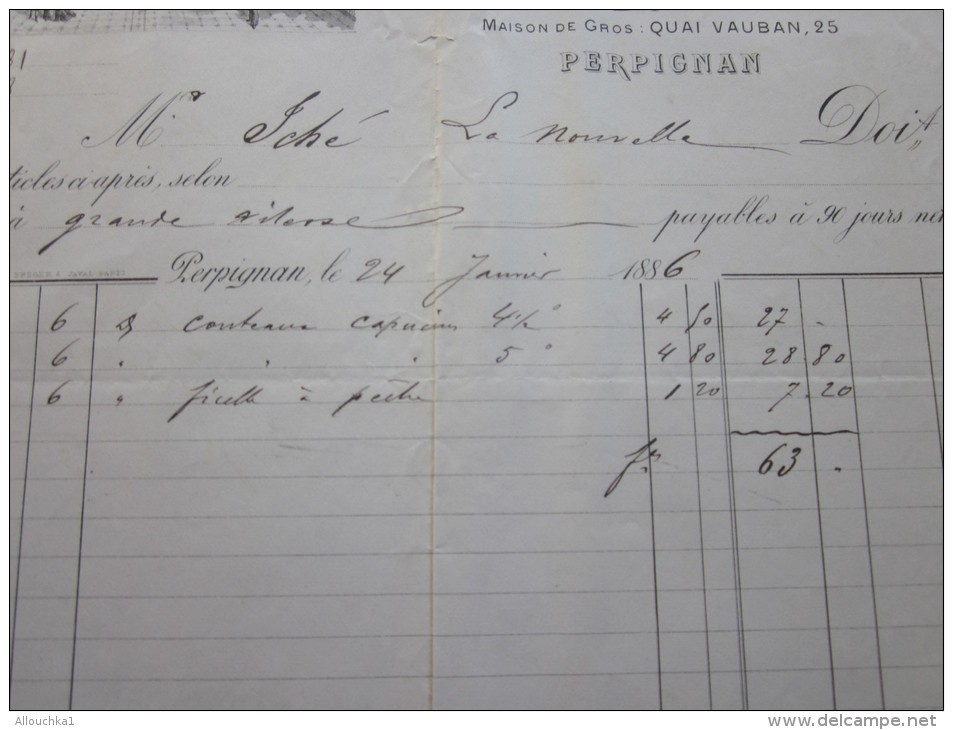 MAISON DE GROS : QUAI VAUBAN, 25
PERPIGNAN
Mr Iché La Nouvelle Doit
ticles ci-après, selon
à grande vitesse payables à 90 jours
Perpignan, le 24 Janvier 1886
6 couteaux capucins 4½ 4 50 27 "
6 " " " 5 4 80 28.80
6 " ficelle à 1 20 7.20
frs 63 "
Allouchka1
www.delcampe.net